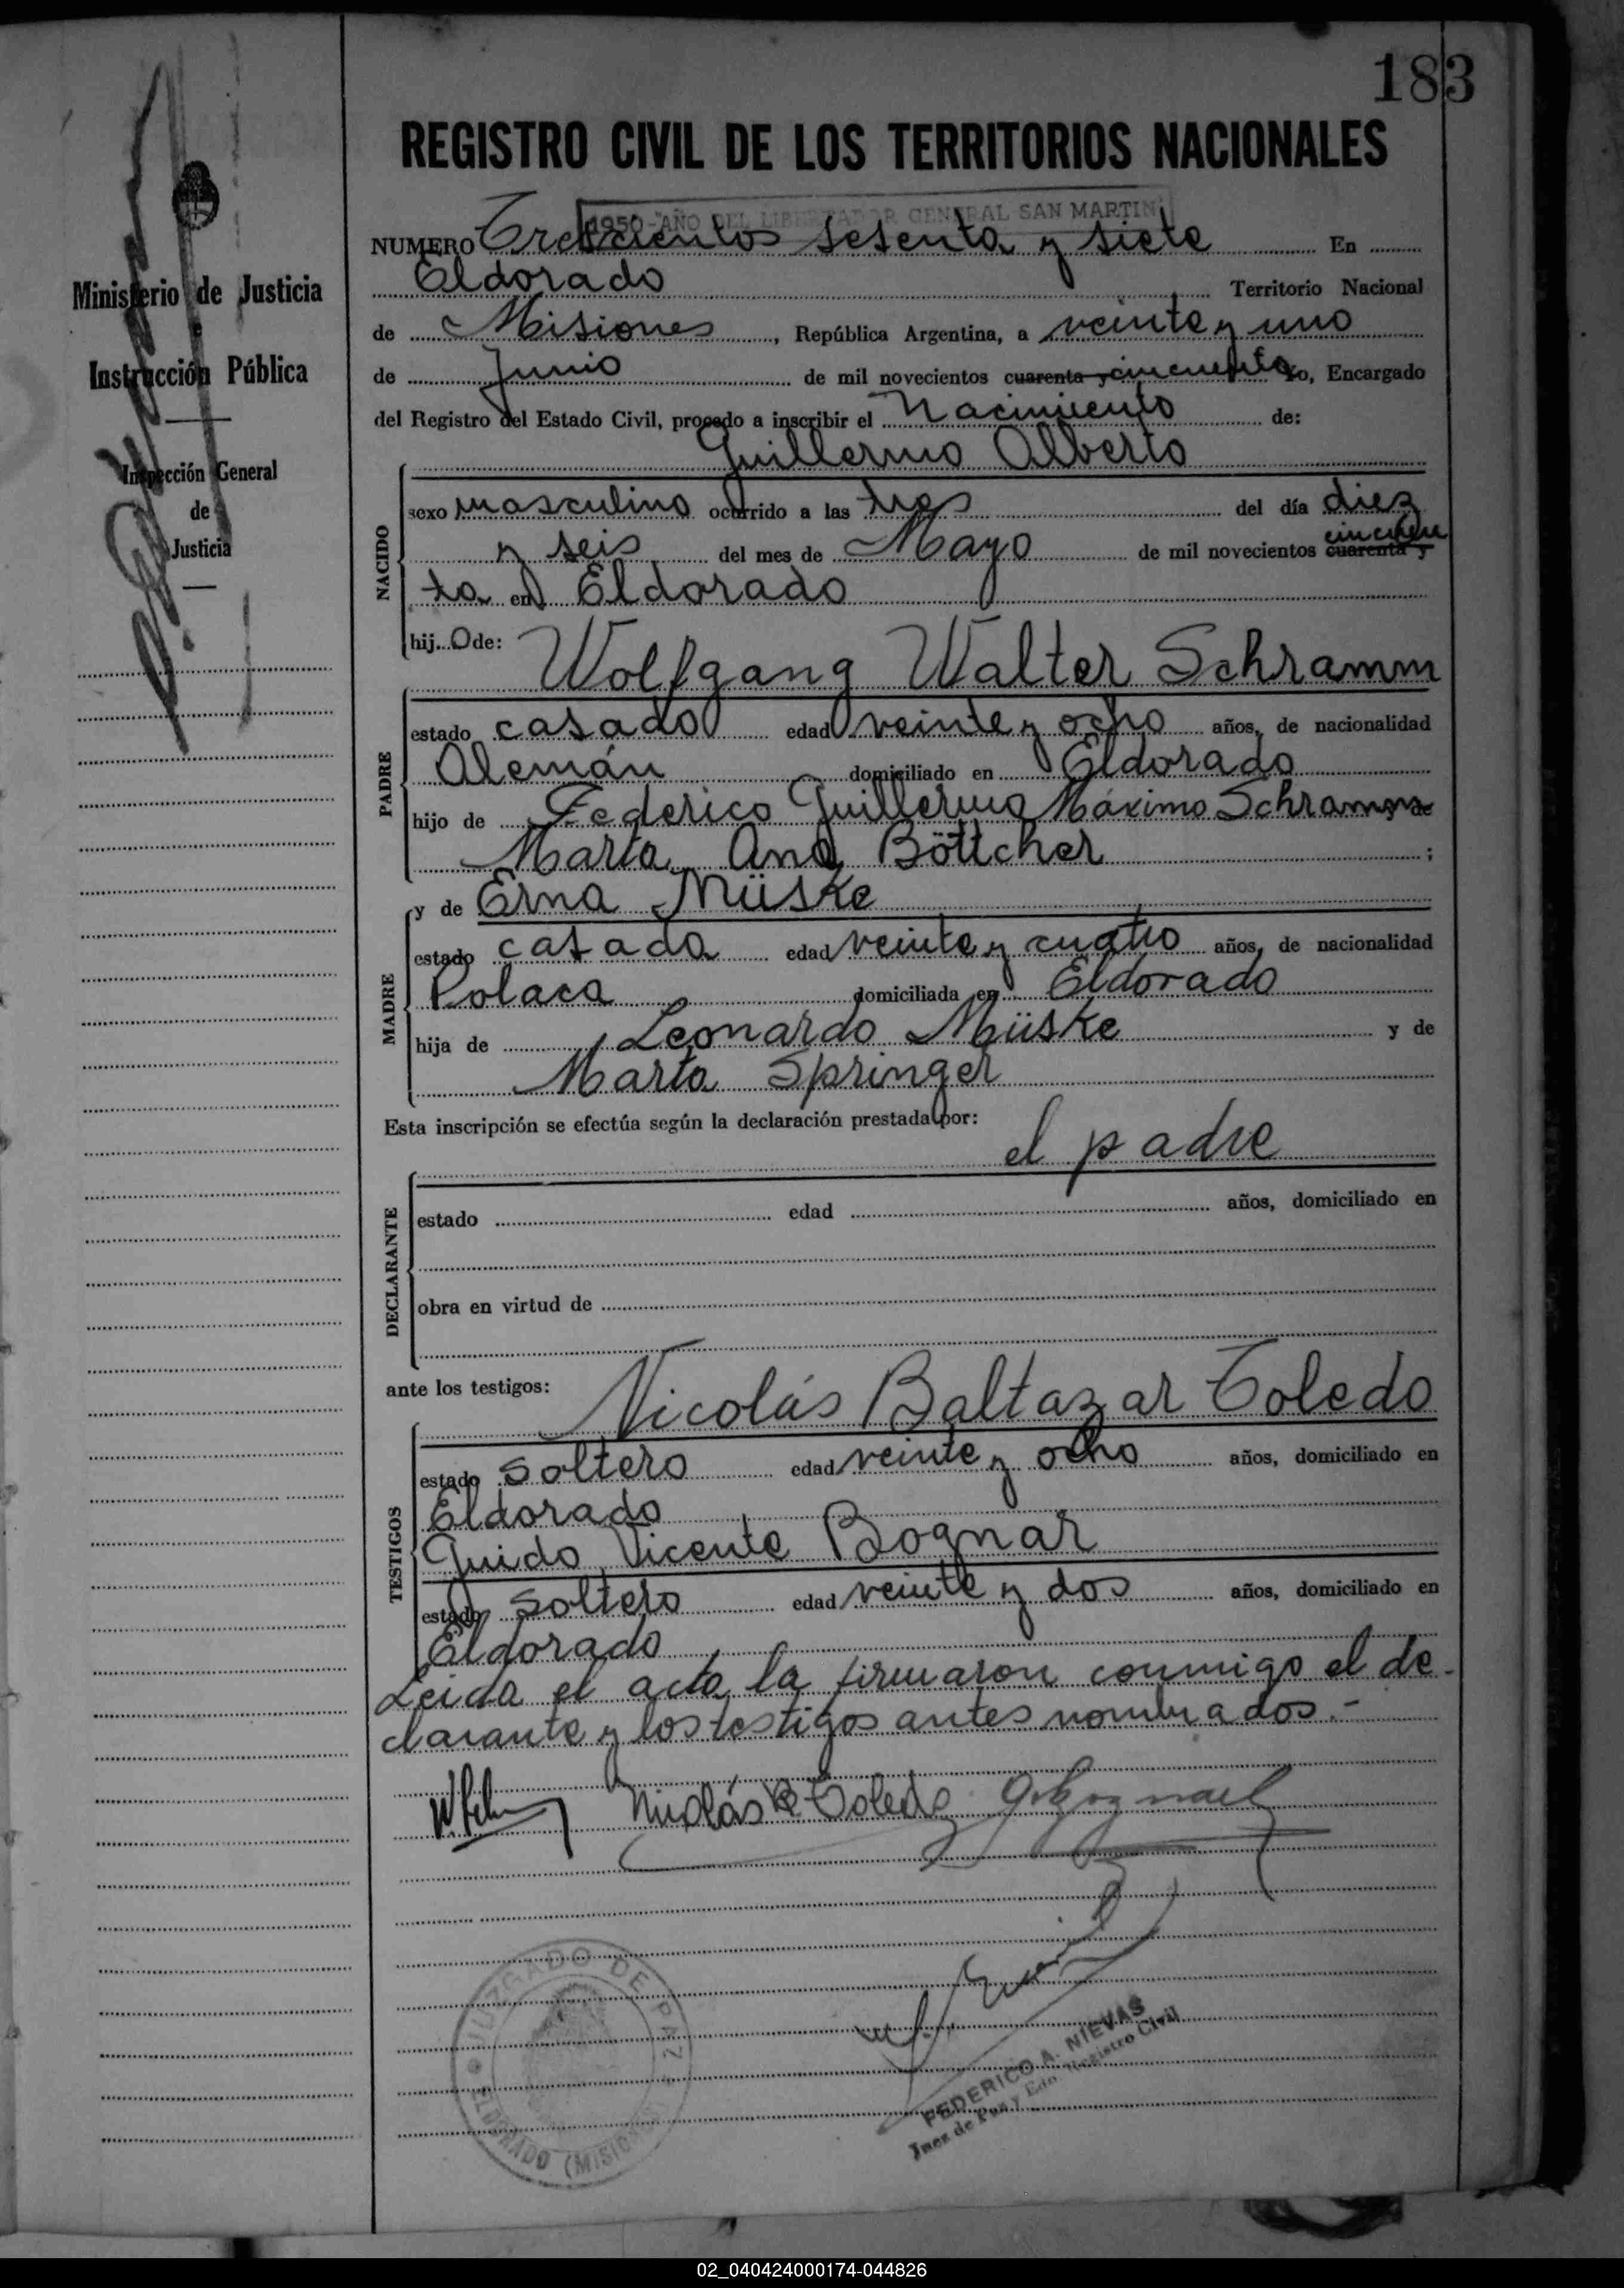 183
REGISTRO CIVIL DE LOS TERRITORIOS NACIONALES
1950-AÑO DEL LIBERTADOR GENERAL SAN MARTIN
NUMERO Trescientos sesenta y siete En
Eldorado Territorio Nacional
de Misiones, República Argentina, a veinte y uno
de Junio de mil novecientos cuarenta y cincuenta Yo, Encargado
del Registro del Estado Civil, procedo a inscribir el Nacimiento de:
Guillermo Alberto
NACIDO
sexo masculino ocurrido a las tres del día diez
y seis del mes de Mayo de mil novecientos cuarenta y cincuen
ta en Eldorado
hij o de:
Wolfgang Walter Schramm
PADRE
estado casado edad veinte y ocho años, de nacionalidad
Alemán domiciliado en Eldorado
hijo de Federico Guillermo Máximo Schramm y de
Marta Ana Böttcher ;
y de Erna Müske
MADRE
estado casada edad veinte y cuatro años, de nacionalidad
Polaca domiciliada en Eldorado
hija de Leonardo Müske y de
Marta Springer
Esta inscripción se efectúa según la declaración prestada por:
el padre
DECLARANTE
estado edad años, domiciliado en
obra en virtud de
ante los testigos:
Nicolás Baltazar Toledo
TESTIGOS
estado soltero edad veinte y ocho años, domiciliado en
Eldorado
Guido Vicente Bognar
estado soltero edad veinte y dos años, domiciliado en
Eldorado
Leida el acta la firmaron conmigo el de-
clarante y los testigos antes nombrados.-
Nicolás B Toledo
JUZGADO DE PAZ
ELDORADO (MISIONES)
FEDERICO A. NIEVAS
Juez de Paz y Edo. Registro Civil
Ministerio de Justicia
e
Instrucción Pública
Inspección General
de
Justicia
02_040424000174-044826